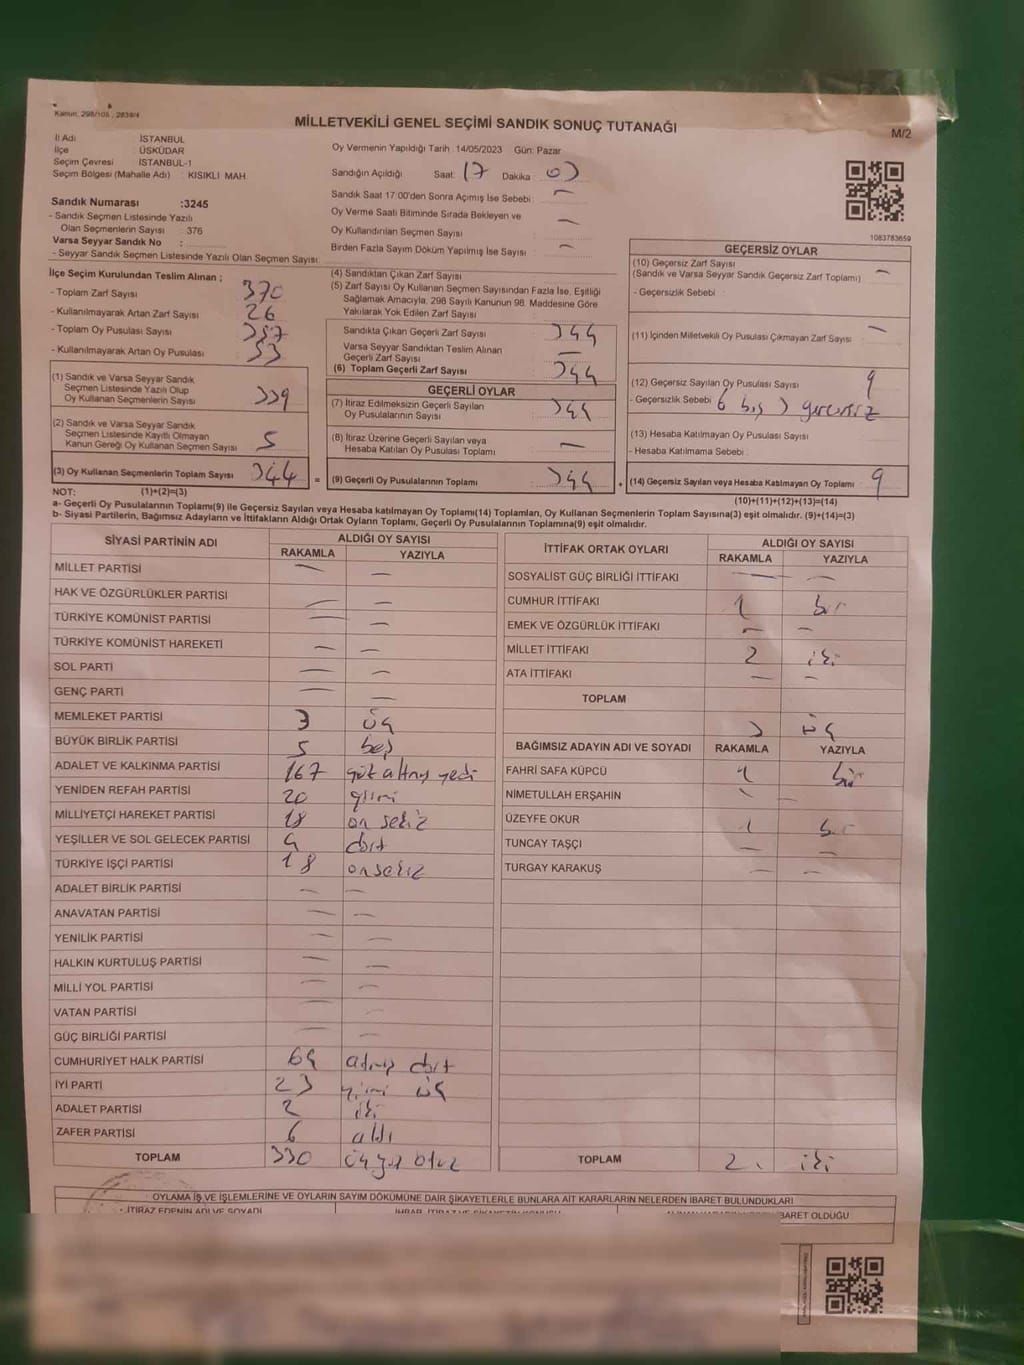 Kanun: 298/105, 2839/4
MİLLETVEKİLİ GENEL SEÇİMİ SANDIK SONUÇ TUTANAĞI
M/2
İl Adı İSTANBUL
İlçe ÜSKÜDAR
Seçim Çevresi İSTANBUL-1
Seçim Bölgesi (Mahalle Adı) : KISIKLI MAH.
Oy Vermenin Yapıldığı Tarih : 14/05/2023 Gün: Pazar
Sandığın Açıldığı Saat: 17 Dakika : 03
Sandık Saat 17:00'den Sonra Açımış İse Sebebi : —
Oy Verme Saati Bitiminde Sırada Bekleyen ve
Oy Kullandırılan Seçmen Sayısı —
Birden Fazla Sayım Döküm Yapılmış İse Sayısı —
1083783659
Sandık Numarası :3245
- Sandık Seçmen Listesinde Yazılı
Olan Seçmenlerin Sayısı : 376
Varsa Seyyar Sandık No :
- Seyyar Sandık Seçmen Listesinde Yazılı Olan Seçmen Sayısı:
İlçe Seçim Kurulundan Teslim Alınan ;
- Toplam Zarf Sayısı 370
- Kullanılmayarak Artan Zarf Sayısı 26
- Toplam Oy Pusulası Sayısı
- Kullanılmayarak Artan Oy Pusulası
(1) Sandık ve Varsa Seyyar Sandık
Seçmen Listesinde Yazılı Olup
Oy Kullanan Seçmenlerin Sayısı 339
(2) Sandık ve Varsa Seyyar Sandık
Seçmen Listesinde Kayıtlı Olmayan
Kanun Gereği Oy Kullanan Seçmen Sayısı 5
(3) Oy Kullanan Seçmenlerin Toplam Sayısı 344
(4) Sandıktan Çıkan Zarf Sayısı
(5) Zarf Sayısı Oy Kullanan Seçmen Sayısından Fazla İse, Eşitliği
Sağlamak Amacıyla, 298 Sayılı Kanunun 98. Maddesine Göre
Yakılarak Yok Edilen Zarf Sayısı :
Sandıkta Çıkan Geçerli Zarf Sayısı 344
Varsa Seyyar Sandıktan Teslim Alınan
Geçerli Zarf Sayısı —
(6) Toplam Geçerli Zarf Sayısı 344
GEÇERLİ OYLAR
(7) İtiraz Edilmeksizin Geçerli Sayılan
Oy Pusulalarının Sayısı : 344
(8) İtiraz Üzerine Geçerli Sayılan veya
Hesaba Katılan Oy Pusulası Toplamı —
= (9) Geçerli Oy Pusulalarının Toplamı : 344
GEÇERSİZ OYLAR
(10) Geçersiz Zarf Sayısı
(Sandık ve Varsa Seyyar Sandık Geçersiz Zarf Toplamı) —
- Geçersizlik Sebebi :
(11) İçinden Milletvekili Oy Pusulası Çıkmayan Zarf Sayısı —
(12) Geçersiz Sayılan Oy Pusulası Sayısı 9
- Geçersizlik Sebebi 6 boş 3 geçersiz
(13) Hesaba Katılmayan Oy Pusulası Sayısı
- Hesaba Katılmama Sebebi :
+ (14) Geçersiz Sayılan veya Hesaba Katılmayan Oy Toplamı 9
NOT: (1)+(2)=(3)
(10)+(11)+(12)+(13)=(14)
a- Geçerli Oy Pusulalarının Toplamı(9) ile Geçersiz Sayılan veya Hesaba Katılmayan Oy Toplamı(14) Toplamları, Oy Kullanan Seçmenlerin Toplam Sayısına(3) eşit olmalıdır. (9)+(14)=(3)
b- Siyasi Partilerin, Bağımsız Adayların ve İttifakların Aldığı Ortak Oyların Toplamı, Geçerli Oy Pusulalarının Toplamına(9) eşit olmalıdır.
SİYASİ PARTİNİN ADI ALDIĞI OY SAYISI
RAKAMLA YAZIYLA
MİLLET PARTİSİ — —
HAK VE ÖZGÜRLÜKLER PARTİSİ — —
TÜRKİYE KOMÜNİST PARTİSİ — —
TÜRKİYE KOMÜNİST HAREKETİ — —
SOL PARTİ — —
GENÇ PARTİ — —
MEMLEKET PARTİSİ 3 üç
BÜYÜK BİRLİK PARTİSİ 5 beş
ADALET VE KALKINMA PARTİSİ 167 yüz altmış yedi
YENİDEN REFAH PARTİSİ 20 yirmi
MİLLİYETÇİ HAREKET PARTİSİ 18 on sekiz
YEŞİLLER VE SOL GELECEK PARTİSİ 4 dört
TÜRKİYE İŞÇİ PARTİSİ 18 onsekiz
ADALET BİRLİK PARTİSİ — —
ANAVATAN PARTİSİ — —
YENİLİK PARTİSİ — —
HALKIN KURTULUŞ PARTİSİ — —
MİLLİ YOL PARTİSİ — —
VATAN PARTİSİ — —
GÜÇ BİRLİĞİ PARTİSİ — —
CUMHURİYET HALK PARTİSİ 64 altmış dört
İYİ PARTİ 23 yirmi üç
ADALET PARTİSİ 2 iki
ZAFER PARTİSİ 6 altı
TOPLAM 330 üç yüz otuz
İTTİFAK ORTAK OYLARI ALDIĞI OY SAYISI
RAKAMLA YAZIYLA
SOSYALİST GÜÇ BİRLİĞİ İTTİFAKI — —
CUMHUR İTTİFAKI 1 bir
EMEK VE ÖZGÜRLÜK İTTİFAKI — —
MİLLET İTTİFAKI 2 iki
ATA İTTİFAKI — —
TOPLAM
3 üç
BAĞIMSIZ ADAYIN ADI VE SOYADI RAKAMLA YAZIYLA
FAHRİ SAFA KÜPCÜ 1 bir
NİMETULLAH ERŞAHİN — —
ÜZEYFE OKUR 1 bir
TUNCAY TAŞÇI — —
TURGAY KARAKUŞ — —
TOPLAM 2 iki
OYLAMA İŞ VE İŞLEMLERİNE VE OYLARIN SAYIM DÖKÜMÜNE DAİR ŞİKAYETLERLE BUNLARA AİT KARARLARIN NELERDEN İBARET BULUNDUKLARI
İTİRAZ EDENİN ADI VE SOYADI
İBARET OLDUĞU